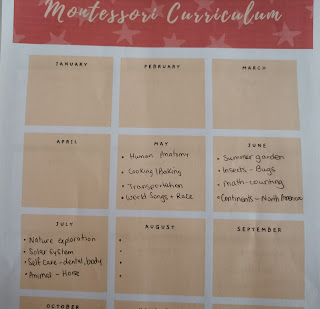 Montessori Curriculum
JANUARY
FEBRUARY
MARCH
APRIL
MAY
• Human Anatomy
• Cooking/Baking
• Transportation
• World Songs + Race
JUNE
• Summer garden
• Insects - Bugs
• Math - counting
• Continents - North America
JULY
• Nature exploration
• Solar System
• Self Care - dental, body
• Animal - Horse
AUGUST
SEPTEMBER
OCTOBER